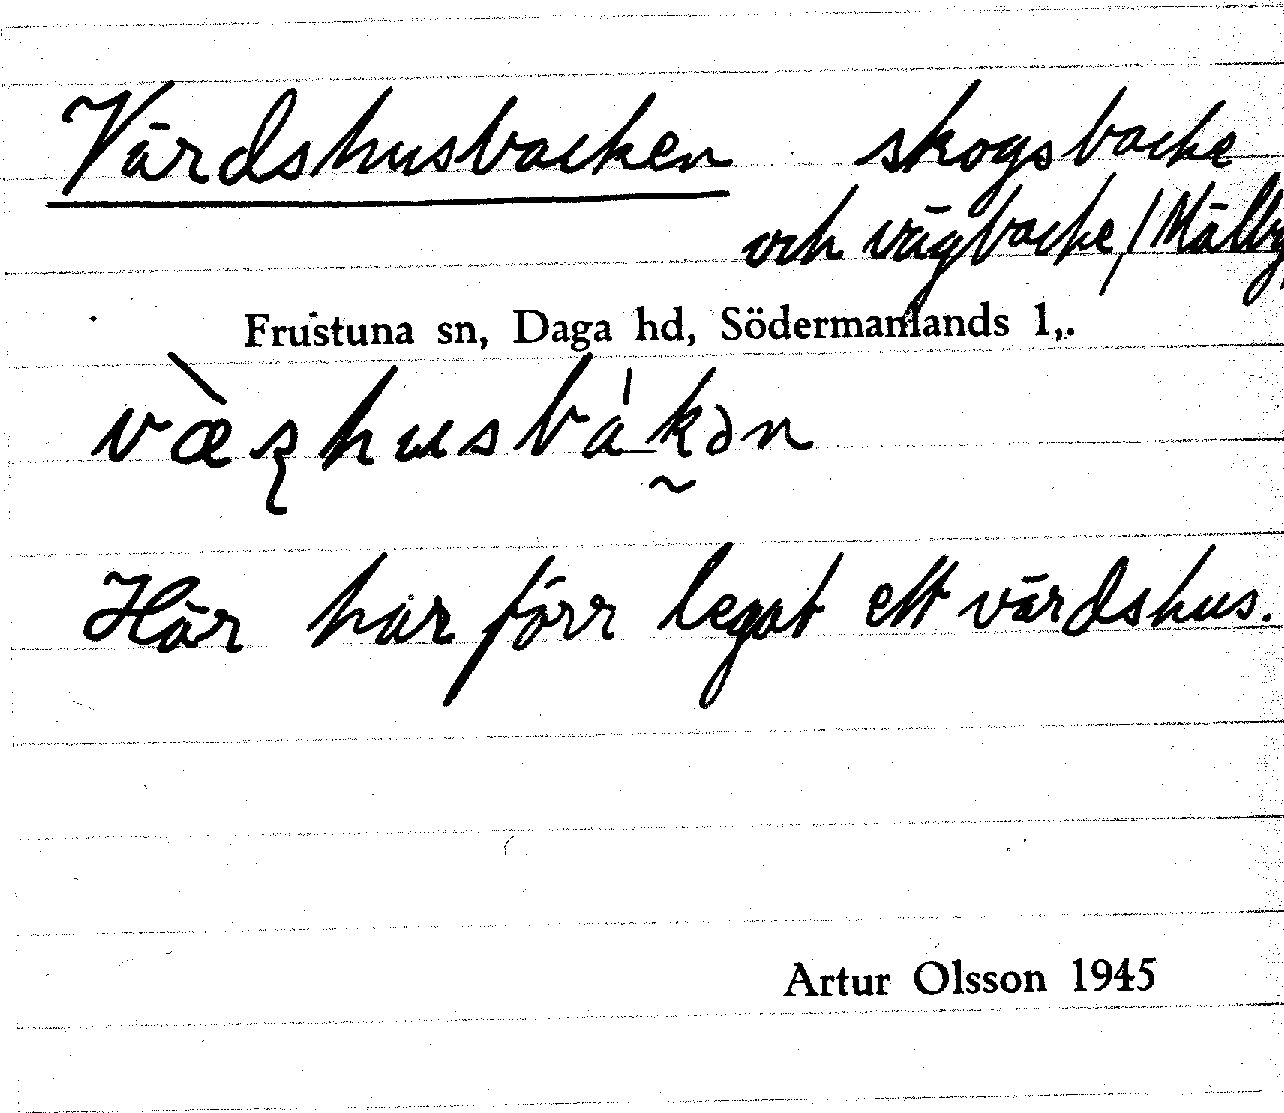 Värdshusbacken skogsbacke
och vägbacke / Mälby
Frustuna sn, Daga hd, Södermanlands l.
Här har förr legat ett värdshus.
Artur Olsson 1945